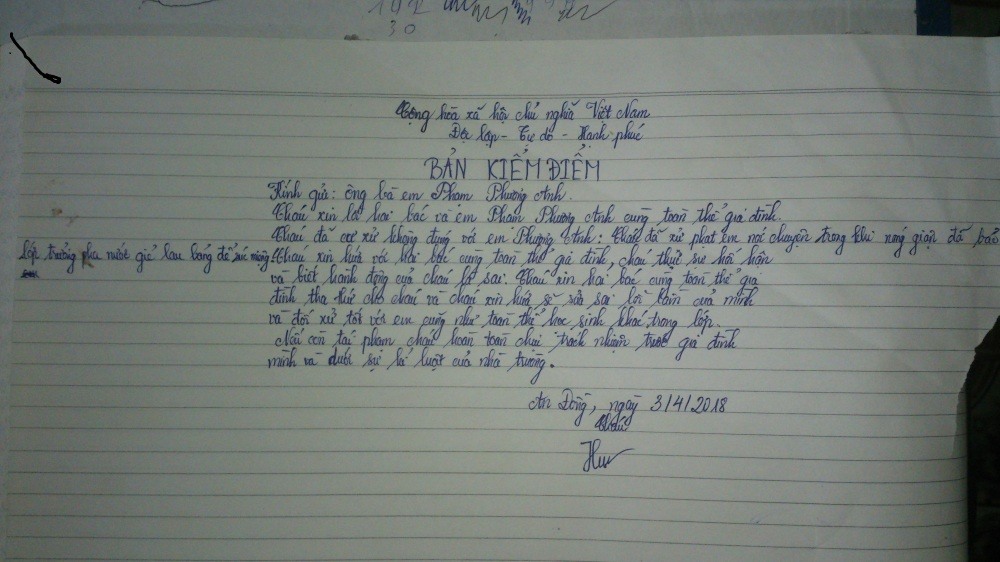 192
30
Cộng hòa xã hội chủ nghĩa Việt Nam
Độc lập - Tự do - Hạnh phúc
BẢN KIỂM ĐIỂM
Kính gửi: ông bà em Phạm Phương Anh.
Cháu xin lỗi hai bác và em Phạm Phương Anh cùng toàn thể gia đình.
Cháu đã cư xử không đúng với em Phương Anh: Cháu đã xử phạt em nói chuyện trong khi nóng giận đã bảo
lớp trưởng pha nước giẻ lau bảng để súc miệng
Cháu xin hứa với hai bác cùng toàn thể gia đình, cháu thực sự hối hận
và biết hành động của cháu là sai. Cháu xin hai bác cùng toàn thể gia
đình tha thứ cho cháu và cháu xin hứa sẽ sửa sai lỗi lầm của mình
và đối xử tốt với em cũng như toàn thể học sinh khác trong lớp.
Nếu còn tái phạm cháu hoàn toàn chịu trách nhiệm trước gia đình
mình và dưới sự kỉ luật của nhà trường.
An Đồng, ngày 3/4/2018
Cháu